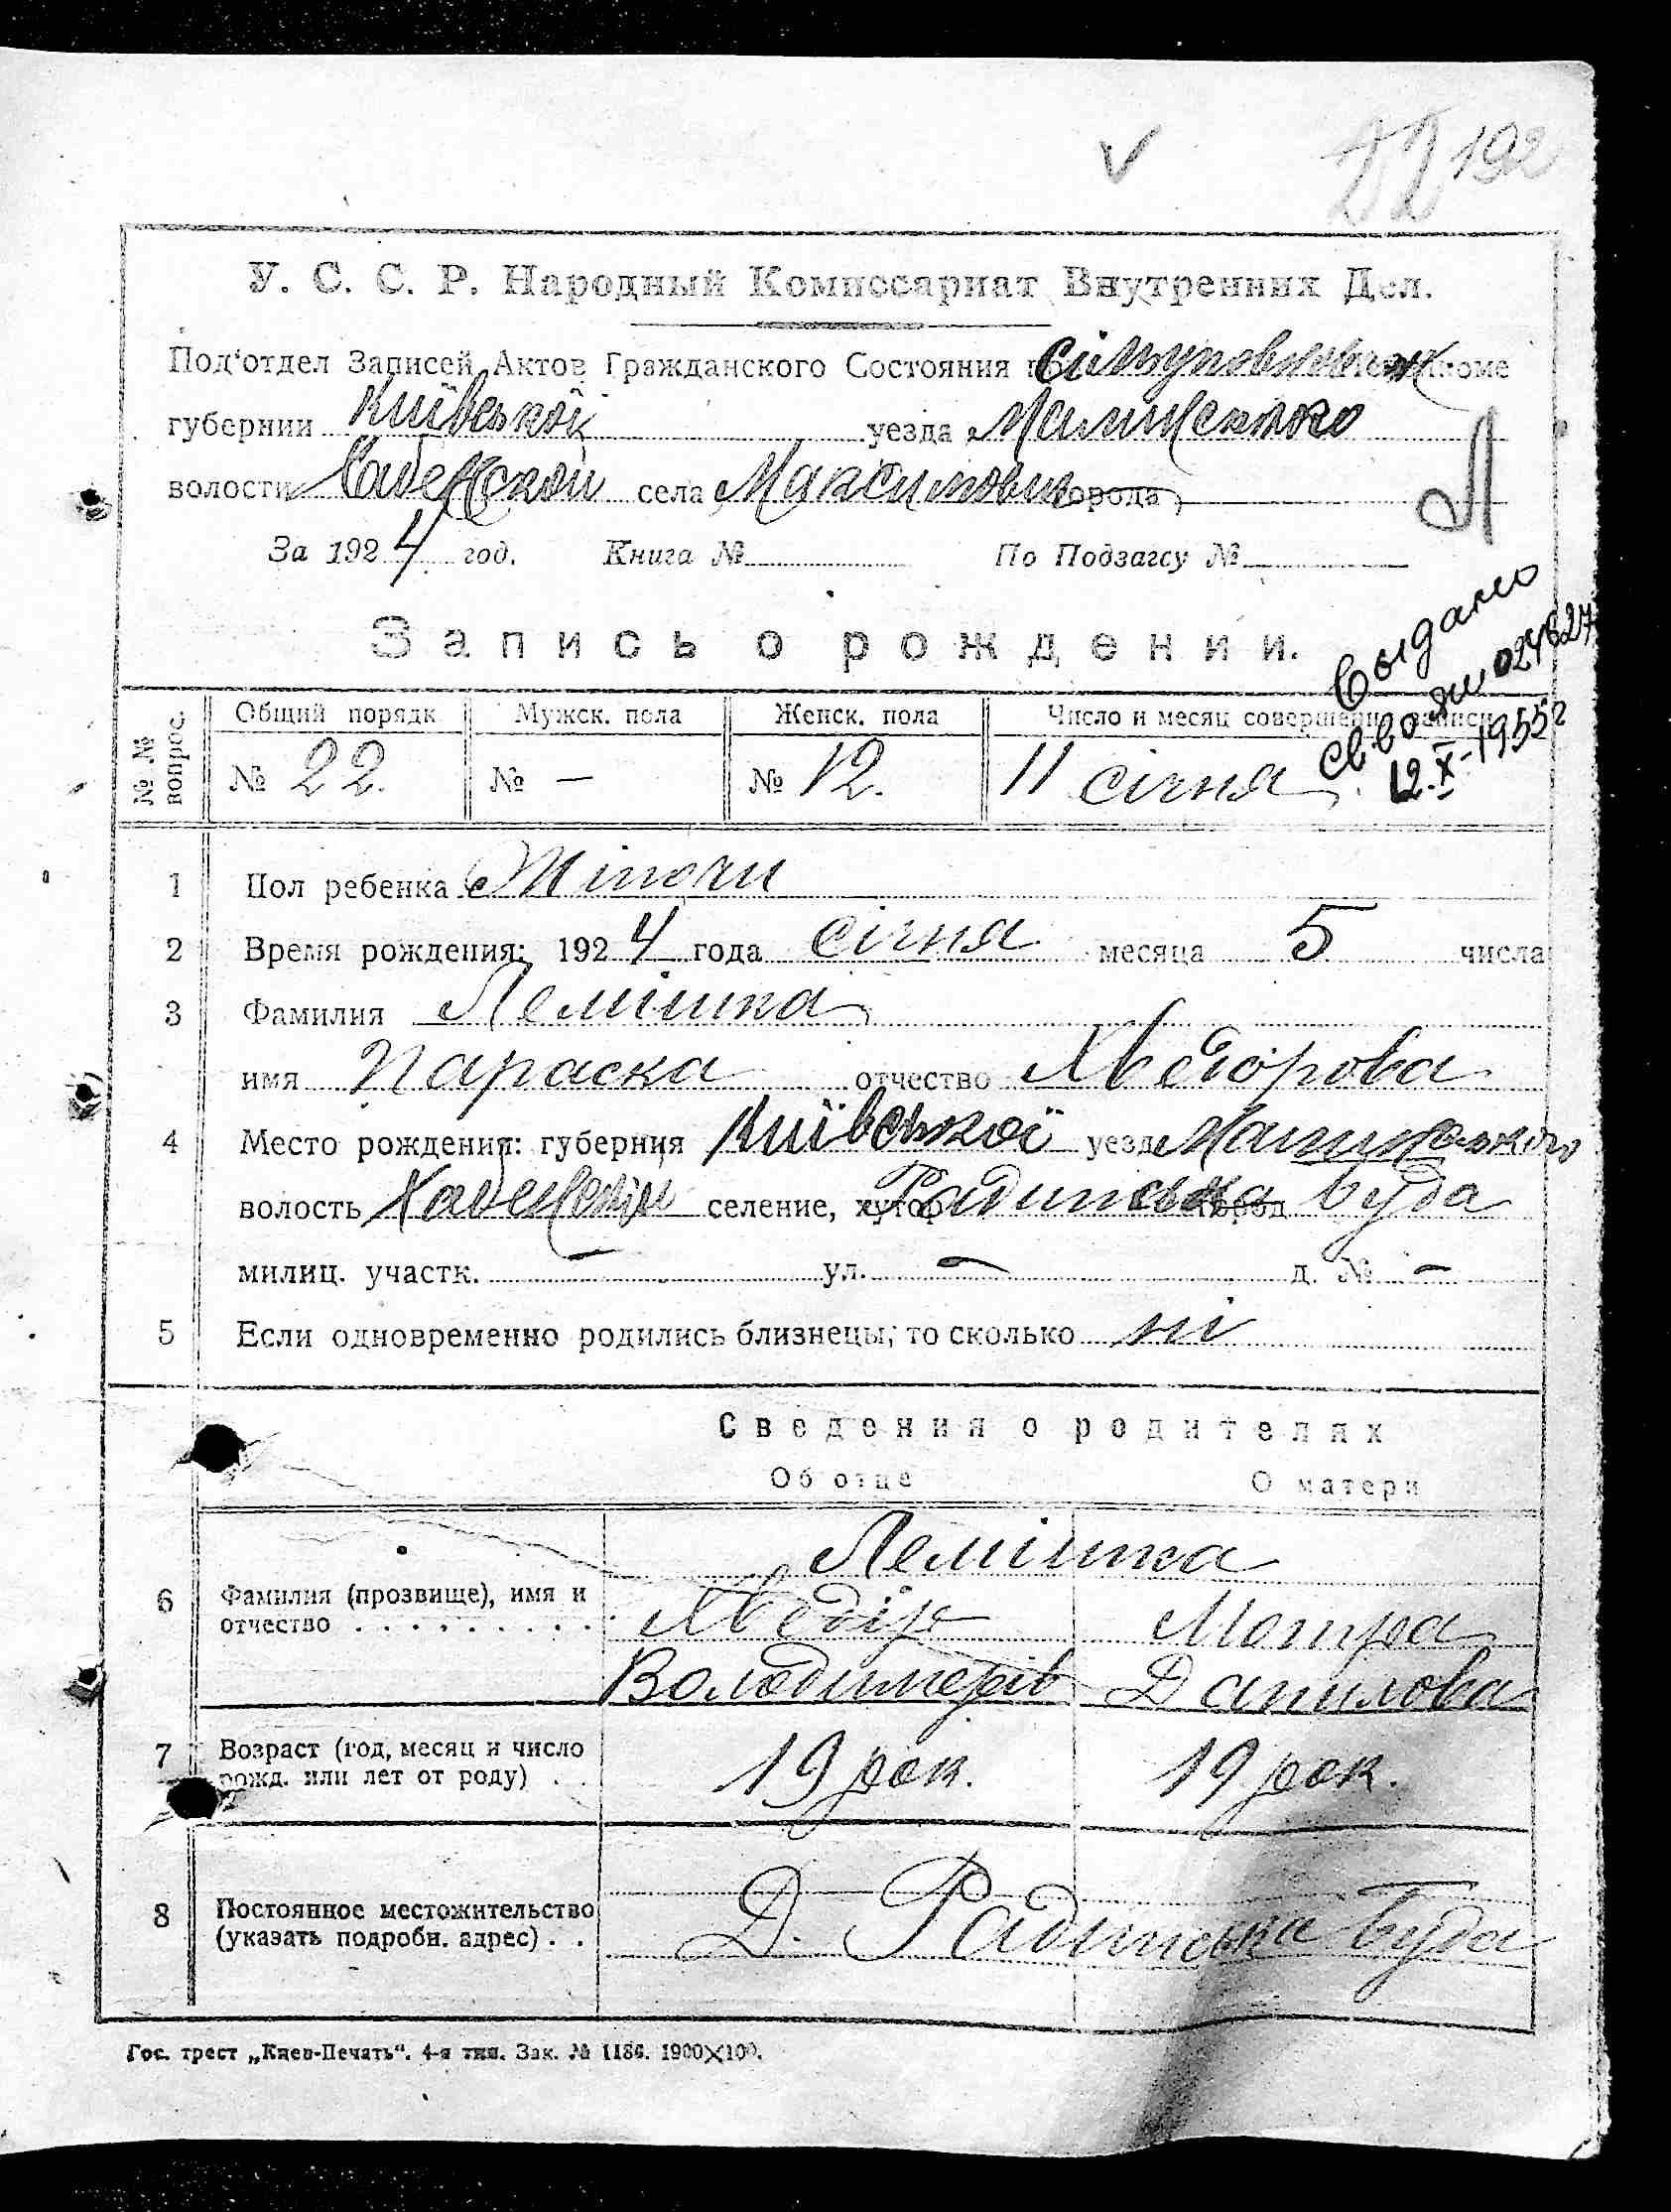 192
У. С. С. Р. Народный Комиссариат Внутренних Дел.
Под‘отдел Записей Актов Гражданского Состояния
губернии Київської уезда
волости села Максимович города
За 1924 год. Книга № По Подзагсу №
Л
Запись о рождении.
Выдано
св-во 024627
12.X-1955
№№ вопрос. Общий порядк Мужск. пола Женск. пола Число и месяц совершени записи
№ 22. № — № 12. 11 січня
1 Пол ребенка Жіночи
2 Время рождения: 1924 года січня месяца 5 числа
3 Фамилия Лемішка
имя Параска отчество Хведорова
4 Место рождения: губерния Київської уезд
волость селение, хутор город Радинська буда
милиц. участк. — ул. — д. № —
5 Если одновременно родились близнецы, то сколько ні
Сведения о родителях
Об отце О матери
Лемішка
6 Фамилия (прозвище), имя и Хведір Мотра
отчество Володимерів Данилова
7 Возраст (год, месяц и число 19 рок. 19 рок.
рожд. или лет от роду)
8 Постоянное местожительство Д. Радинська Буда
(указать подробн. адрес)
Гос. трест „Киев-Печать“. 4-я тип. Зак. № 1186. 1900×100.